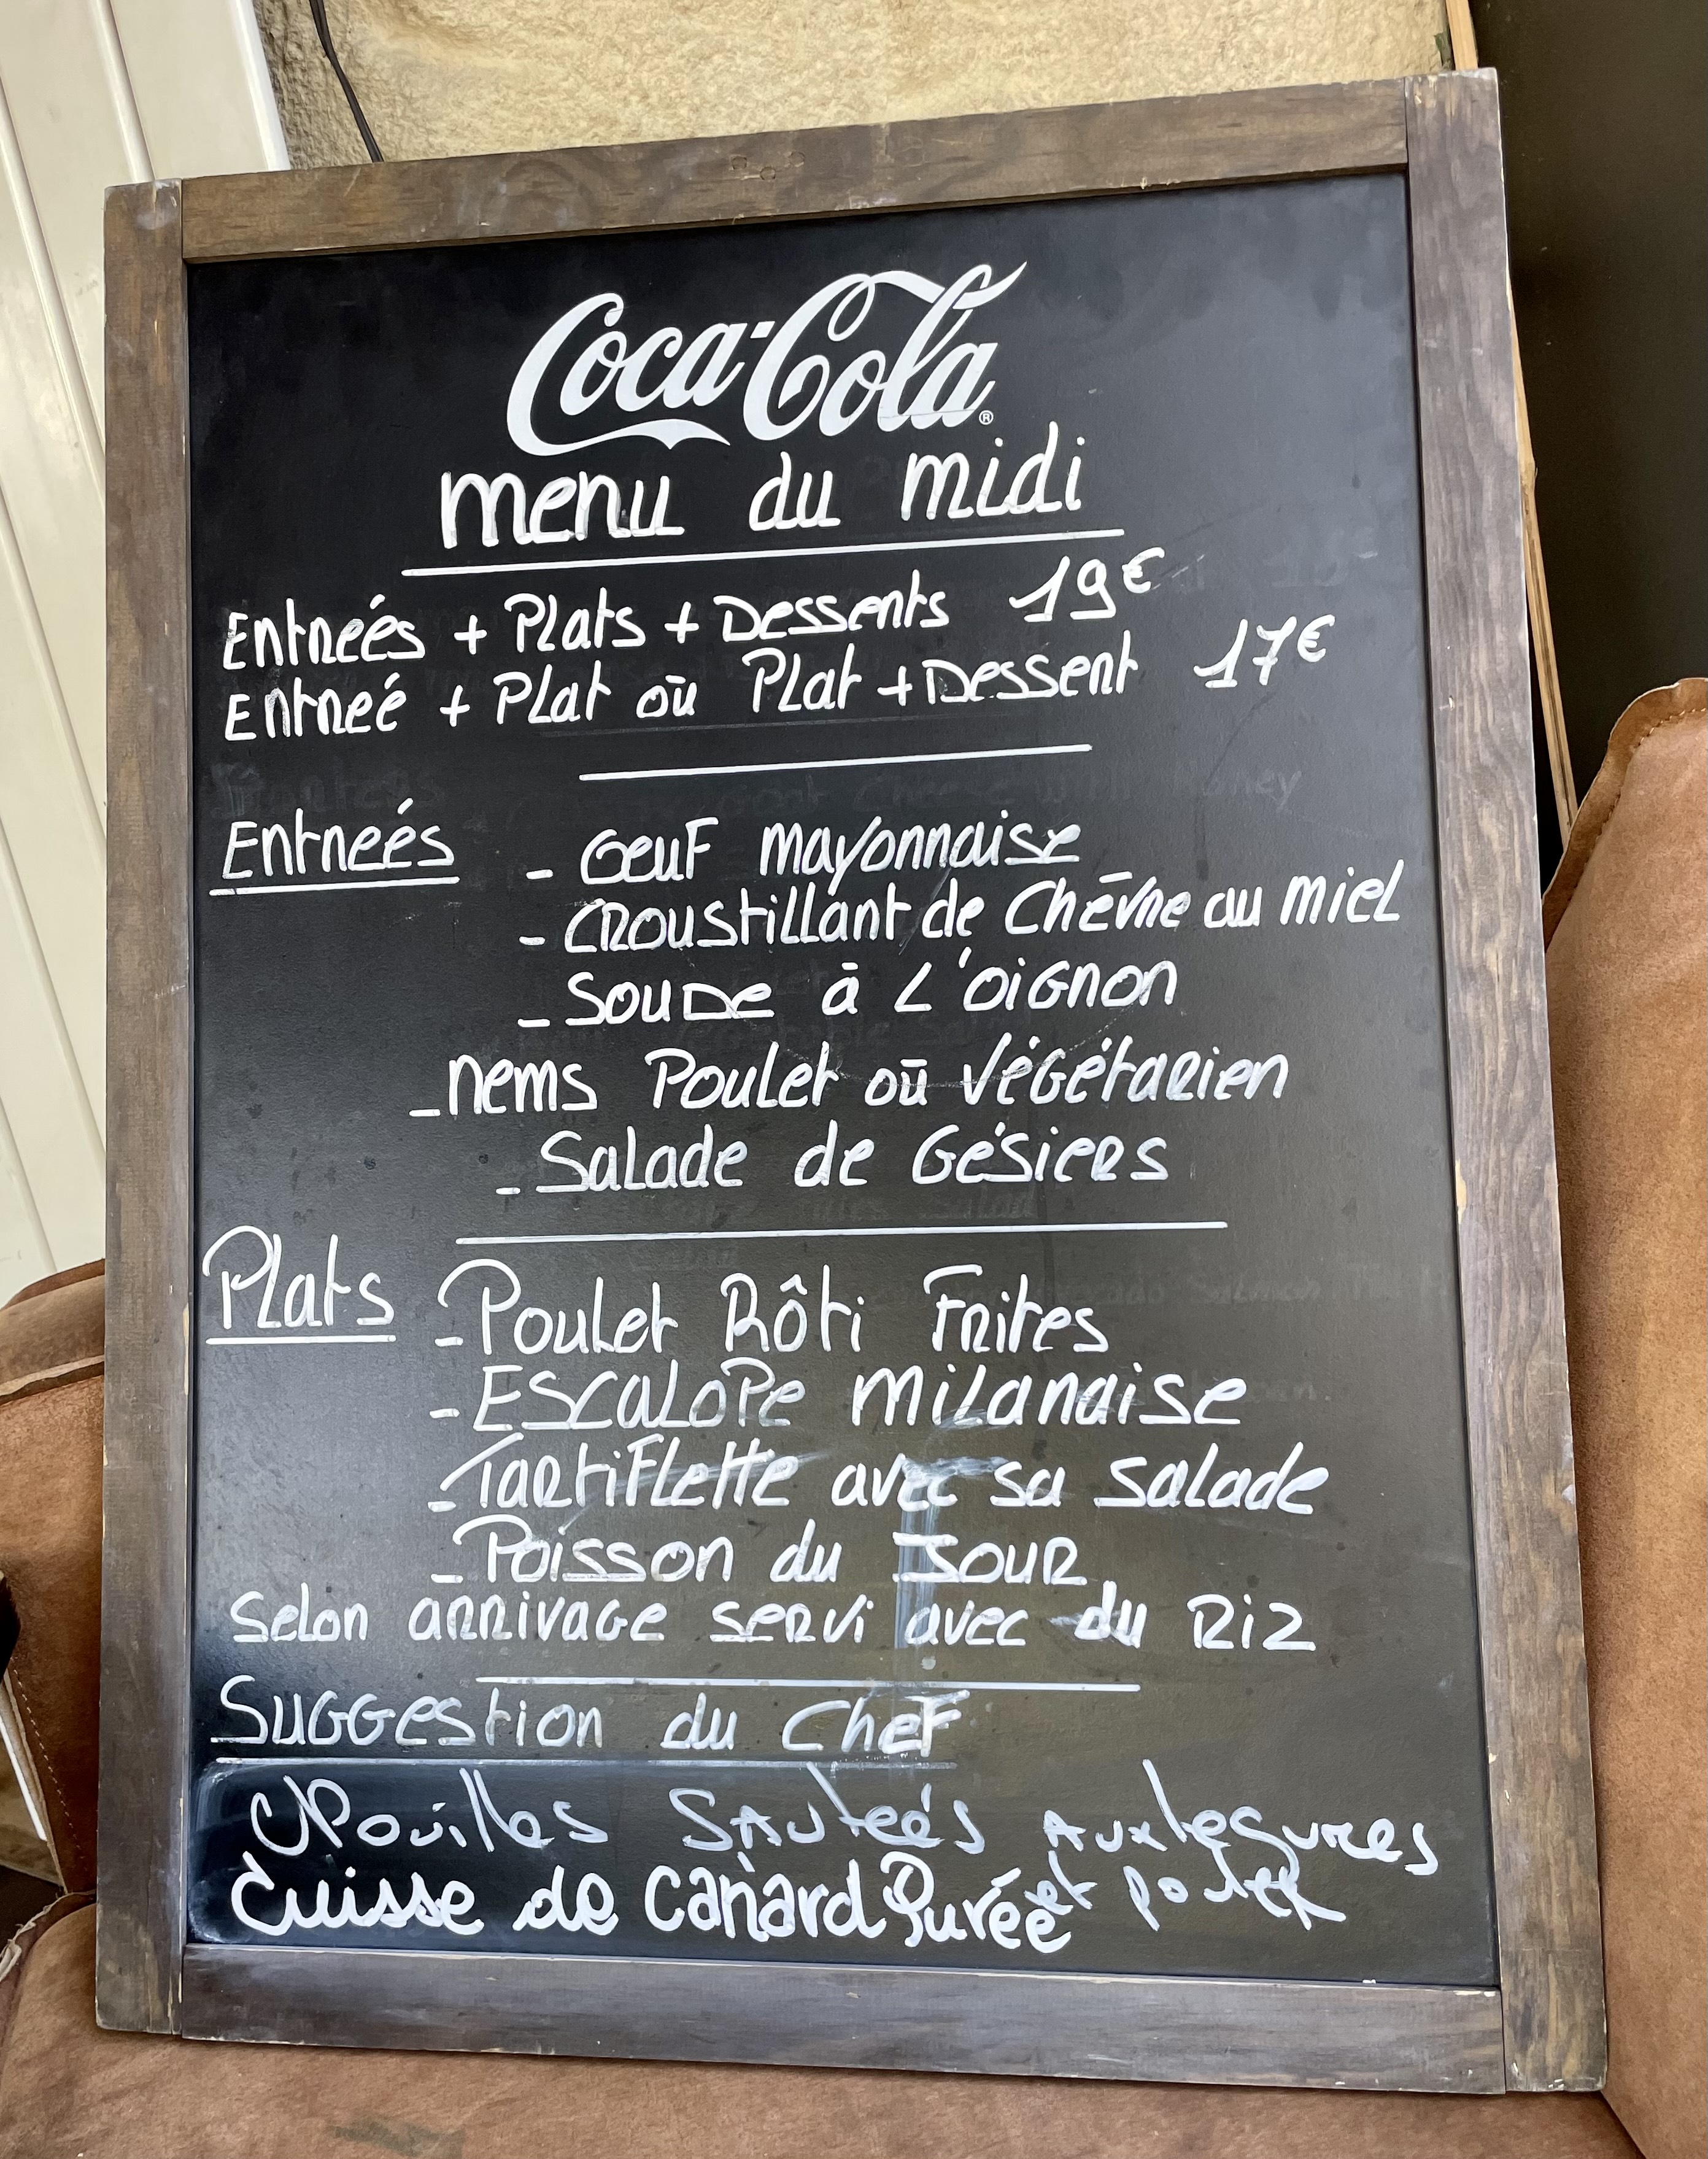 Coca-Cola®
menu du midi
Entreés + Plats + Desserts 19€
Entreé + Plat où Plat + Dessert 17€
Entreés - Oeuf mayonnaise
- Croustillant de Chèvre au miel
- Soupe à l'oignon
- nems Poulet où végétarien
- Salade de Gésiers
Plats - Poulet Rôti Frites
- Escalope milanaise
- Tartiflette avec sa salade
- Poisson du Jour
selon arrivage servi avec du Riz
Suggestion du Chef
Nouilles Sauteés aux legumes
et poulet
Cuisse de Canard Purée